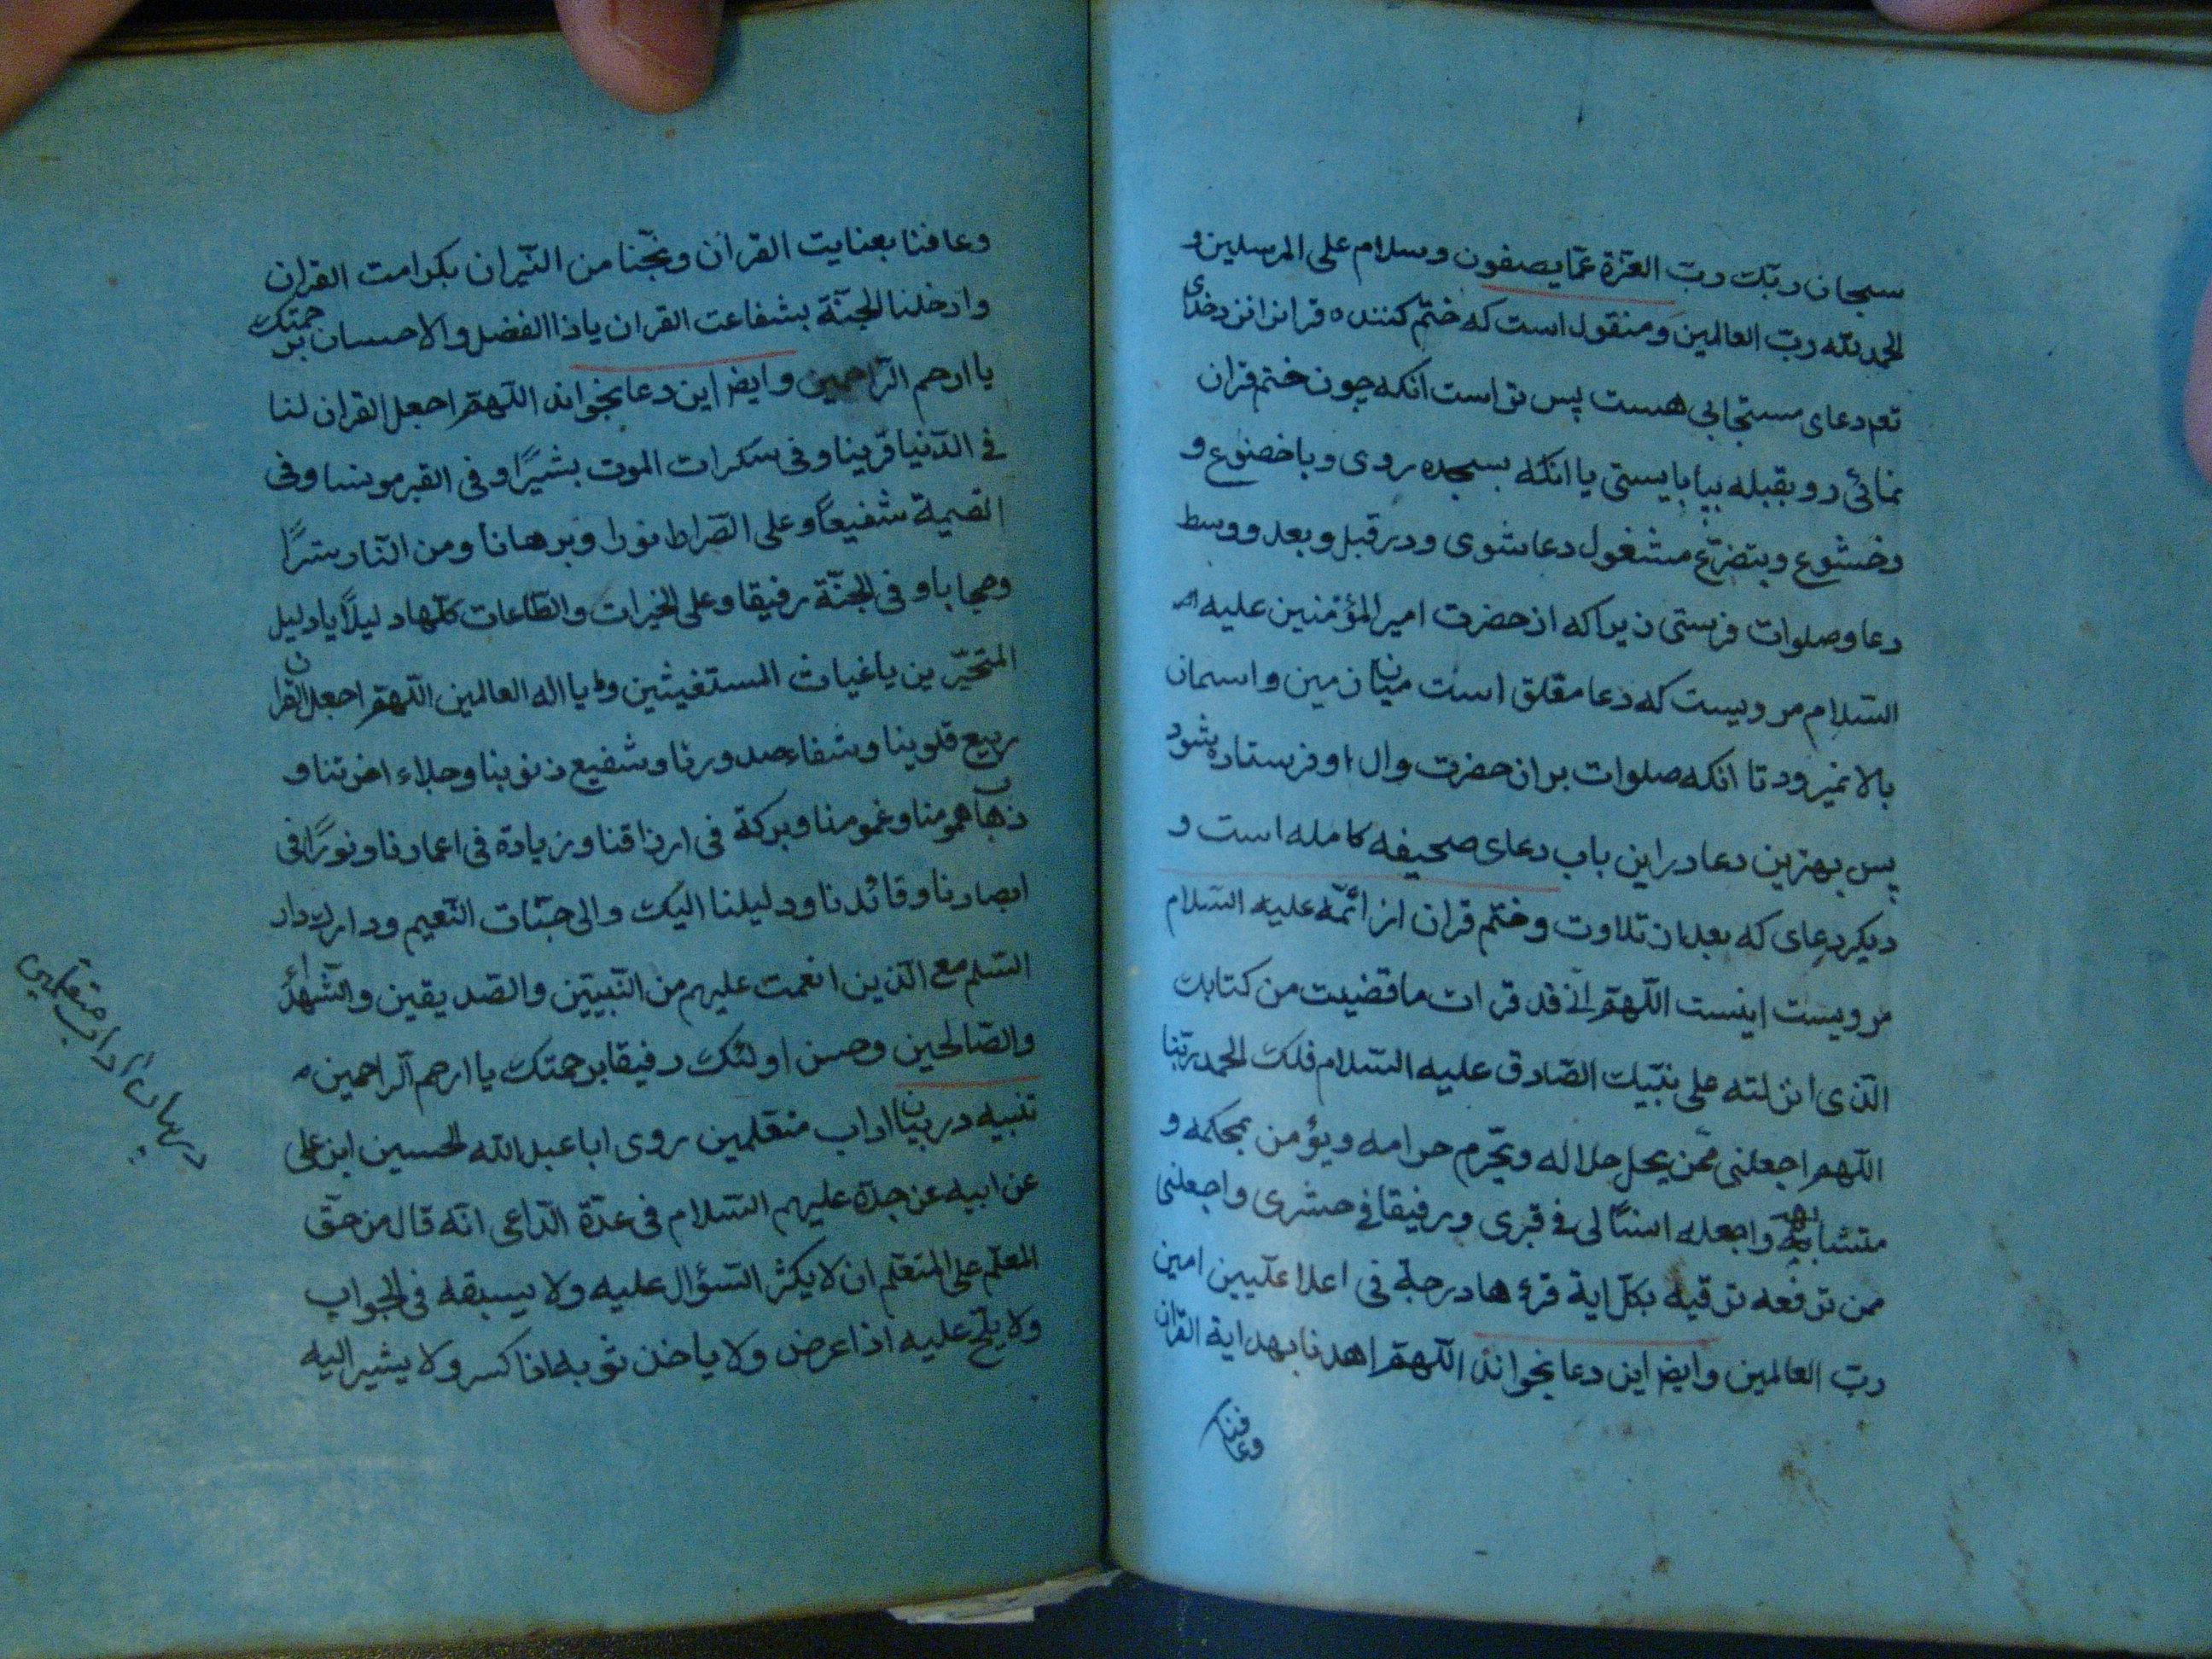 سبحان ربّك ربّ العزّة عمّا يصفون وسلام على المرسلين و
الحمد لله ربّ العالمين ومنقول است كه ختم كننده قرانرا نزد خدای
تعم دعای مستجابی هست پس تراست انكه چون ختم قران
نمائی رو بقبله بپا بایستی یا انکه بسجده روی و با خضوع و
و خشوع و بتضرّع مشغول دعا شوی و در قبل و بعد و وسط
دعا و صلوات فرستی زیرا که از حضرت امیر المؤمنین علیه
السّلام مرویست که دعا مقلق است میان زمین و اسمان
بالا نمیرود تا انکه صلوات بران حضرت و ال او فرستاده شود
پس بهترین دعا در این باب دعای صحیفه کامله است و
دیکر دعای که بعد از تلاوت و ختم قران از ائمّه علیه السّلام
مرویست اینست اللّهمّ انّی قد قرات ما قضیت من کتابك
الّذی انزلته علی نبّیك الصّادق علیه السّلام فلك الحمد ربّنا
اللّهم اجعلنی ممّن یحل حلاله و یحّرم حرامه و یؤمن بمحکمه و
متشابهه واجعله انسًا لی فی قبری و رفیقا فی حشری واجعلنی
ممن ترفعه ترقیه بکلّ ایة قرءها درجة فی اعلا علّیین امین
ربّ العالمین وایض این دعا بخواند اللّهمّ اهدنا بهدایة القران
وعافنا
وعافنا بعنایت القران ونجّنا من النّیران بکرامت القران
وادخلنا الجنّة بشفاعت القران یا ذا الفضل والاحسان برحمتك
یا ارحم الرّاحمین وایض این دعا بخواند اللّهمّ اجعل القران لنا
فی الدّنیا قرینا و فی سکرات الموت بشیرًا و فی القبر مونسا و فی
القیمة شفیعًا و علی الصّراط نورا و برهانا و من النّار سترًا
وحجابا و فی الجنّة رفیقا و علی الخیرات والطّاعات کلّها دلیلًا یا دلیل
المتحیّرین یا غیاث المستغیثین و یا اله العالمین اللّهمّ اجعل القران
ربیع قلوبنا و شفاء صدورنا و شفیع ذنوبنا و جلاء احزننا و
ذهاب همومنا و غمومنا و برکة فی ارزاقنا و زیادة فی اعمارنا و نورًا فی
ابصارنا و قائدنا و دلیلنا الیك والی جنّات النّعیم و دارك دار
السّلم مع الّذین انعمت علیهم من النّبیّین والصّدیقین والشّهدآء
والصّالحین وحسن اولئك رفیقا برحمتك یا ارحم الرّاحمین
تنبیه در بیان اداب متعلمین روی ابا عبد الله الحسین ابن علی
عن ابیه عن جدّه علیهم السّلام فی عدّة الدّاعی انّه قال من حقّ
المعلّم علی المتعّلم ان لا یکثر السّؤال علیه ولا یسبقه فی الجواب
ولا یلحّ علیه اذا اعرض ولا یاخذ ثوبه اذا کسر ولا یشیر الیه
در بیان اداب متعلمین